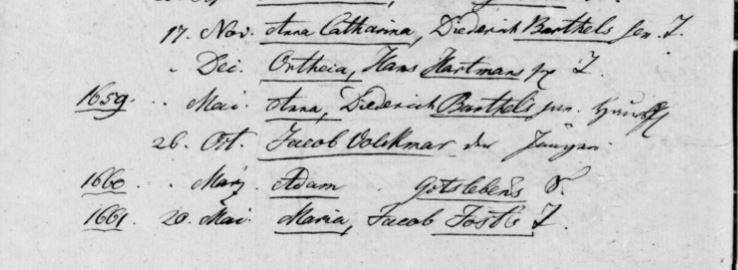 17. Nov. Anna Catharina, Diederich Barthels sen. T.
" Dec. Ortheia, Hans Hartmans T.
1659. " Mai. Anna, Diederich Barthels jun.
26. Oct. Jacob Volckmar der
1660 " März Adam Gotslebens S.
1661. 20. Mai. Maria, Jacob T.